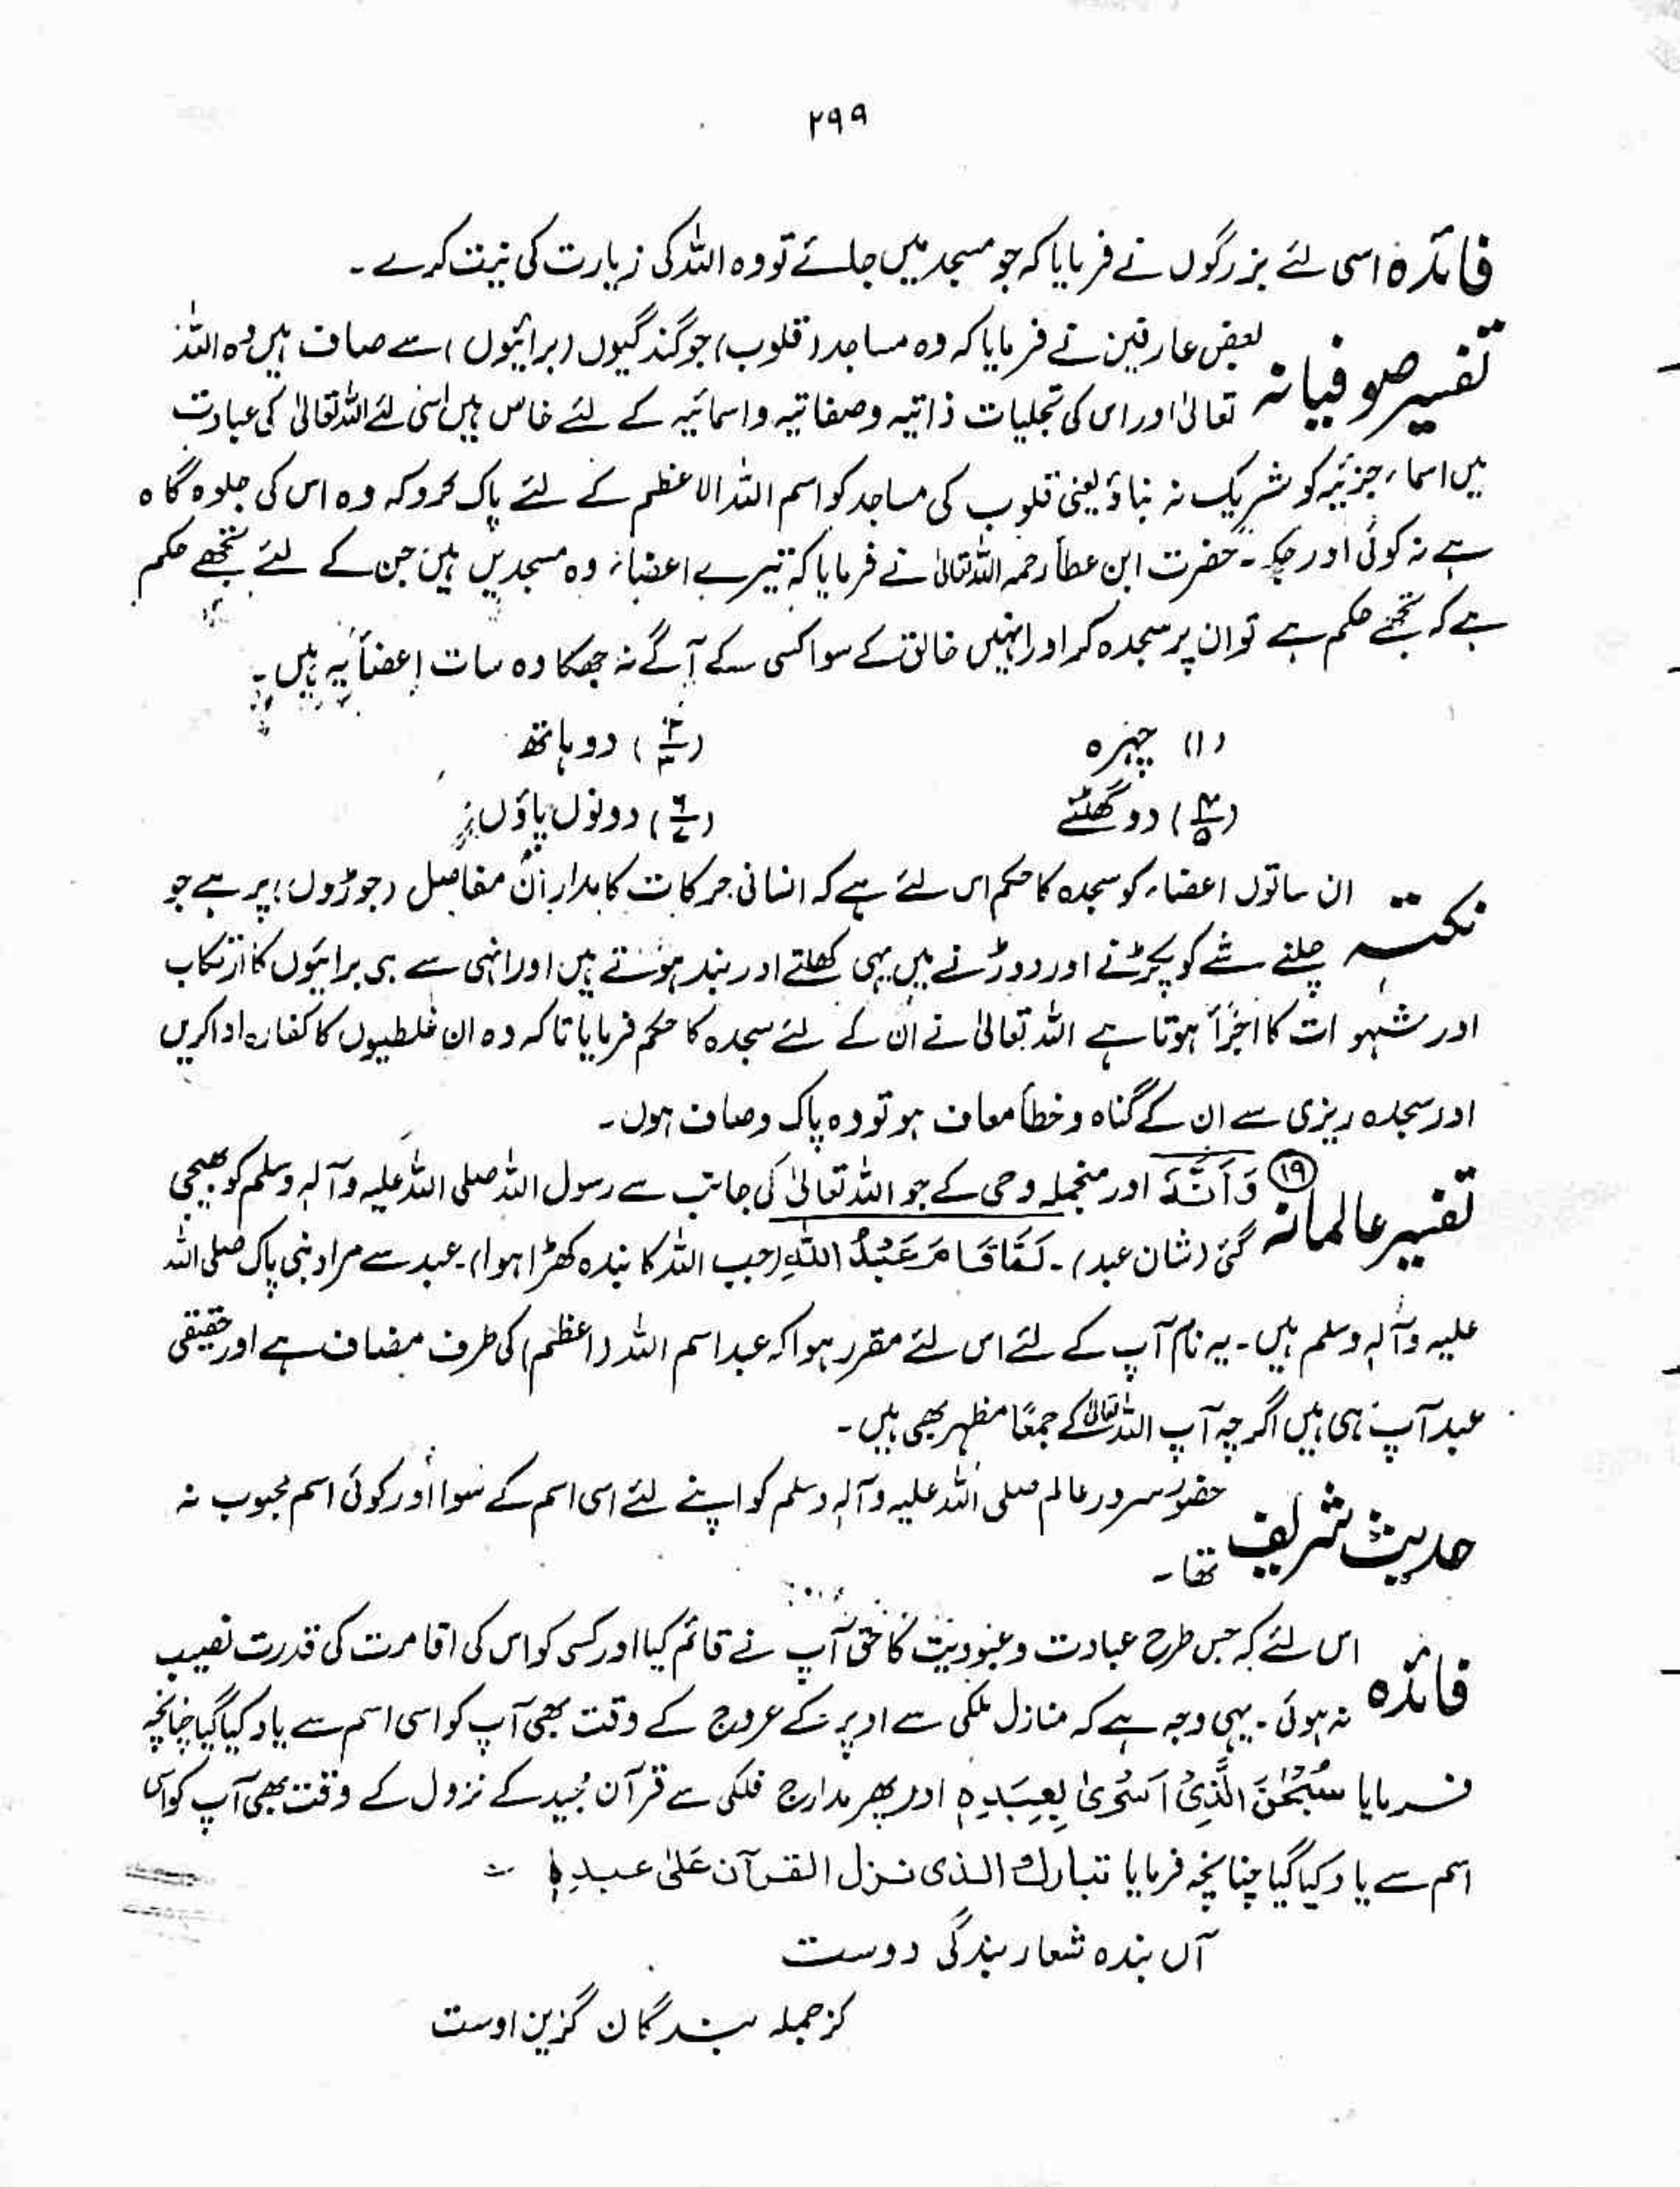 ۲۹۹
فائدہ اسی لئے بزرگوں نے فرمایا کہ جو مسجد میں جائے تو وہ اللہ کی زیارت کی نیت کرے۔
تفسیر صوفیانہ بعض عارفین نے فرمایا کہ وہ مساجد (قلوب) جو گندگیوں (برائیوں) سے صاف ہیں وہ اللہ
تعالیٰ اور اس کی تجلیات ذاتیہ و صفاتیہ و اسمائیہ کے لئے خاص ہیں اسی لئے اللہ تعالیٰ کی عبادت
میں اسماء جزئیہ کو شریک نہ بناؤ یعنی قلوب کی مساجد کو اسم اللہ الاعظم کے لئے پاک کرو کہ وہ اس کی جلوہ گاہ
ہے نہ کوئی اور جگہ۔ حضرت ابن عطأ رحمہ اللہ تعالیٰ نے فرمایا کہ تیرے اعضاء وہ مسجدیں ہیں جن کے لئے تجھے حکم
ہے کہ تجھے حکم ہے تو ان پر سجدہ کر اور انہیں خالق کے سوا کسی کے آگے نہ جھکا وہ سات اعضأ یہ ہیں۔
(۱) چہرہ (۲/۳) دو ہاتھ
(۴/۵) دو گھٹنے (۶/۷) دونوں پاؤں
نکتہ ان ساتوں اعضاء کو سجدہ کا حکم اس لئے ہے کہ انسانی حرکات کا مدار ان مفاصل (جوڑوں) پر ہے جو
چلنے شے کو پکڑنے اور دوڑنے میں یہی کھلتے اور بند ہوتے ہیں اور انہی سے ہی برائیوں کا ارتکاب
اور شہوات کا اجرأ ہوتا ہے اللہ تعالیٰ نے ان کے لئے سجدہ کا حکم فرمایا تاکہ وہ ان غلطیوں کا کفارہ ادا کریں
اور سجدہ ریزی سے ان کے گناہ و خطأ معاف ہو تو وہ پاک و صاف ہوں۔
تفسیر عالمانہ ۱۹ وَاَنَّہٗ اور منجملہ وحی کے جو اللہ تعالیٰ کی جانب سے رسول اللہ صلی اللہ علیہ وآلہٖ وسلم کو بھیجی
گئی (شان عبد)۔ لَمَّا قَامَ عَبْدُ اللّٰہِ (جب اللہ کا بندہ کھڑا ہوا)۔ عبد سے مراد نبی پاک صلی اللہ
علیہ وآلہٖ وسلم ہیں۔ یہ نام آپ کے لئے اس لئے مقرر ہوا کہ عبد اسم اللہ (اعظم) کی طرف مضاف ہے اور حقیقی
عبد آپ ہی ہیں اگرچہ آپ اللہ تعالیٰ کے جمعًا مظہر بھی ہیں۔
حدیث شریف حضور سرور عالم صلی اللہ علیہ وآلہٖ وسلم کو اپنے لئے اسی اسم کے سوا اور کوئی اسم محبوب نہ
تھا۔
فائدہ اس لئے کہ جس طرح عبادت و عبودیت کا حق آپ نے قائم کیا اور کسی کو اس کی اقامت کی قدرت نصیب
نہ ہوئی۔ یہی وجہ ہے کہ منازل ملکی سے اوپر کے عروج کے وقت بھی آپ کو اسی اسم سے یاد کیا گیا چنانچہ
فرمایا سُبْحٰنَ الَّذِیْ اَسْرٰی بِعَبْدِہٖ اور پھر مدارج فلکی سے قرآن مجید کے نزول کے وقت بھی آپ کو اسی
اسم سے یاد کیا گیا چنانچہ فرمایا تبارك الذی نزل القرآن عَلیٰ عبدِہٖ ؎
آں بندہ شعار بندگی دوست
کز جملہ بندگان گزین اوست